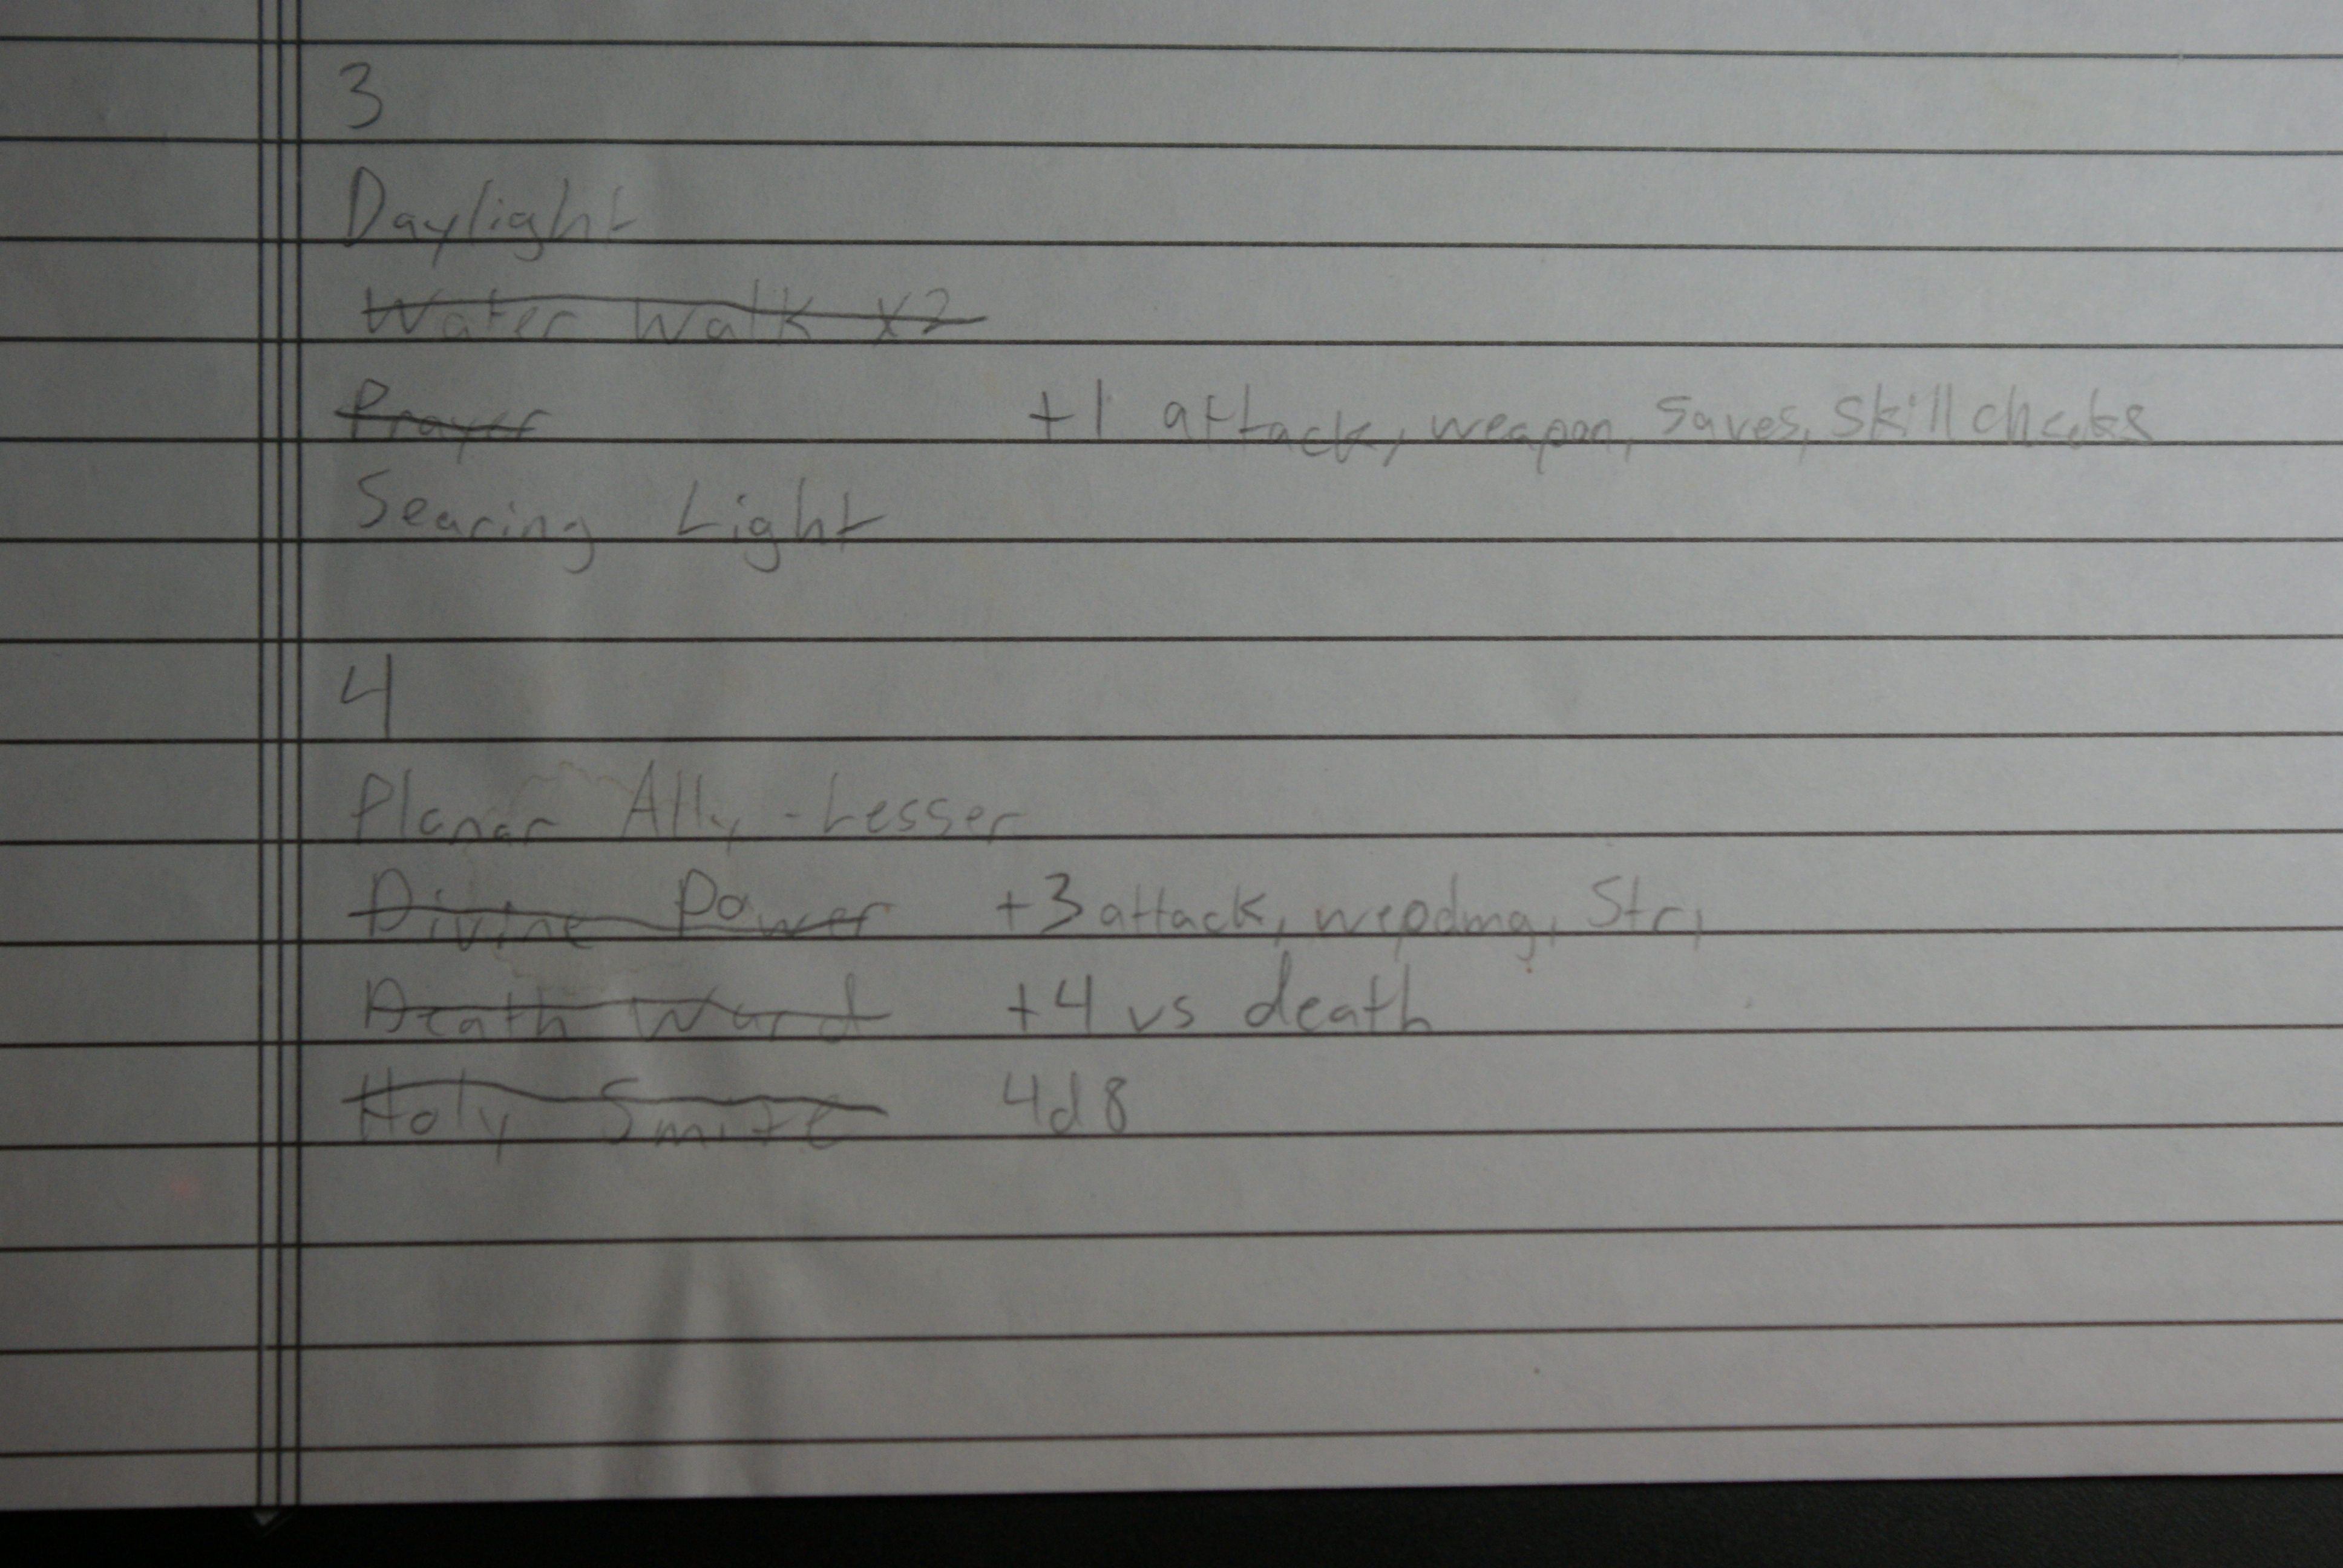 3
Daylight
Water Walk x2
Prayer +1 attack, weapon, saves, skill checks
Searing Light
4
Planar Ally - Lesser
Divine Power +3 attack, wepdmg, Str,
Death Ward +4 vs death
Holy Smite 4d8